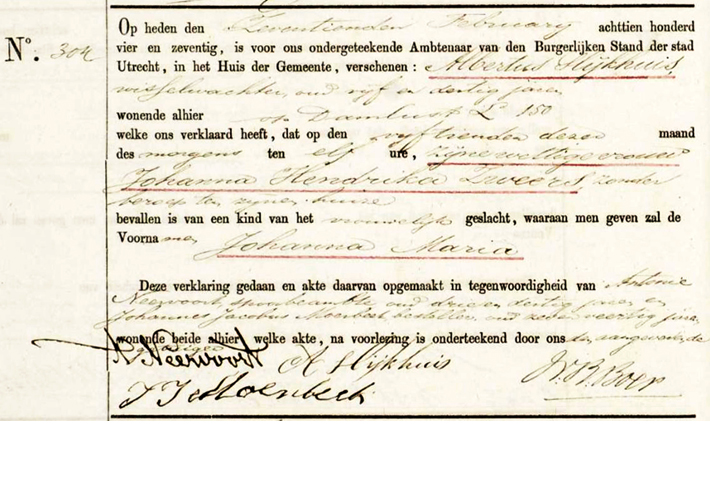 Nº. 304
Op heden den Zeventienden February achttien honderd
vier en zeventig, is voor ons ondergeteekende Ambtenaar van den Burgerlijken Stand der stad
Utrecht, in het Huis der Gemeente, verschenen: Albertus Slijkhuis,
wisselwachter, oud vijf en dertig jaren
wonende alhier op Damlust Lª 150
welke ons verklaard heeft, dat op den vijftienden dezer maand
des morgens ten elf ure, zijne wettige vrouw
Johanna Hendrika Zweers, zonder
beroep ten zijnen huize
bevallen is van een kind van het vrouwelijk geslacht, waaraan men geven zal de
Voornamen Johanna Maria
Deze verklaring gedaan en akte daarvan opgemaakt in tegenwoordigheid van Antonie
Neervoort, spoorbeambte, oud drie en dertig jaren en
Johannes Jacobus Moenbech, besteller, oud veertig jaren
wonende beide alhier welke akte, na voorlezing is onderteekend door ons, den aangever en de
getuigen
A Neervoort A Slijkhuis W.B. Boer
J J Moenbech